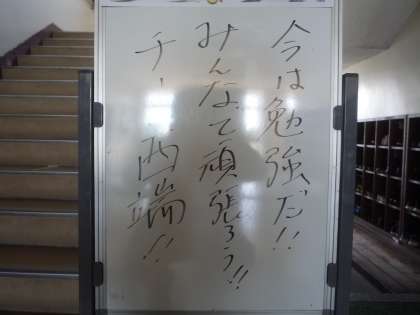 今は勉強だ!!
みんなで頑張ろう!!
チーム西端!!